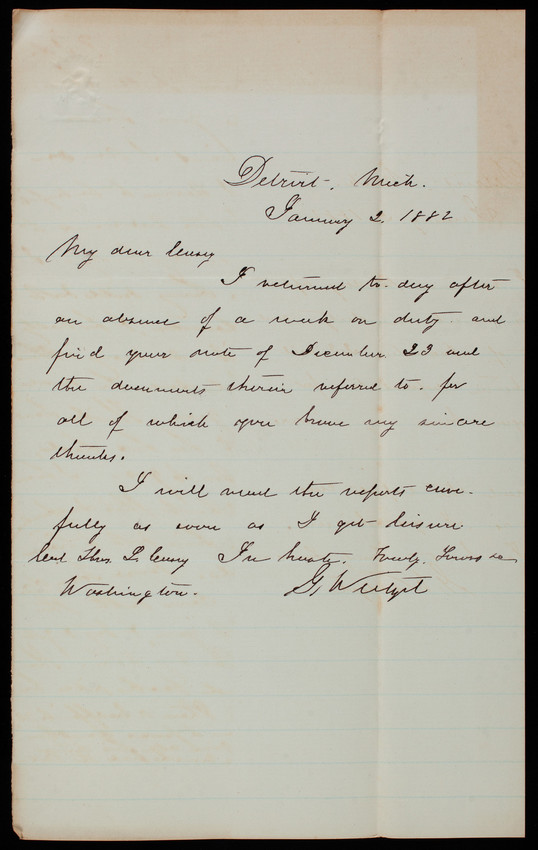 Detroit, Mich.
January 2, 1882
My dear Casey
I returned to-day after
an absence of a week on duty and
find your note of December 23 and
the documents therein referred to, for
all of which you have my sincere
thanks.
I will read the reports care-
fully as soon as I get leisure
Thos. L. Casey In haste, Truly, Yours &c
Washington. G. Weitzel